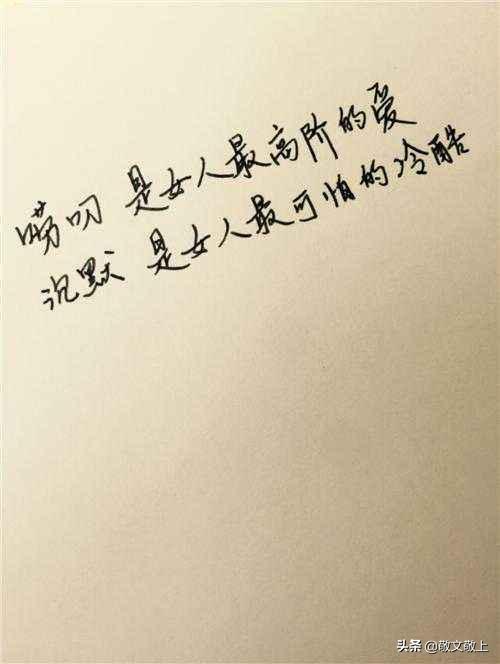 唠叨 是女人最高阶的爱
沉默 是女人最可怕的冷酷
头条 @敬文敬上